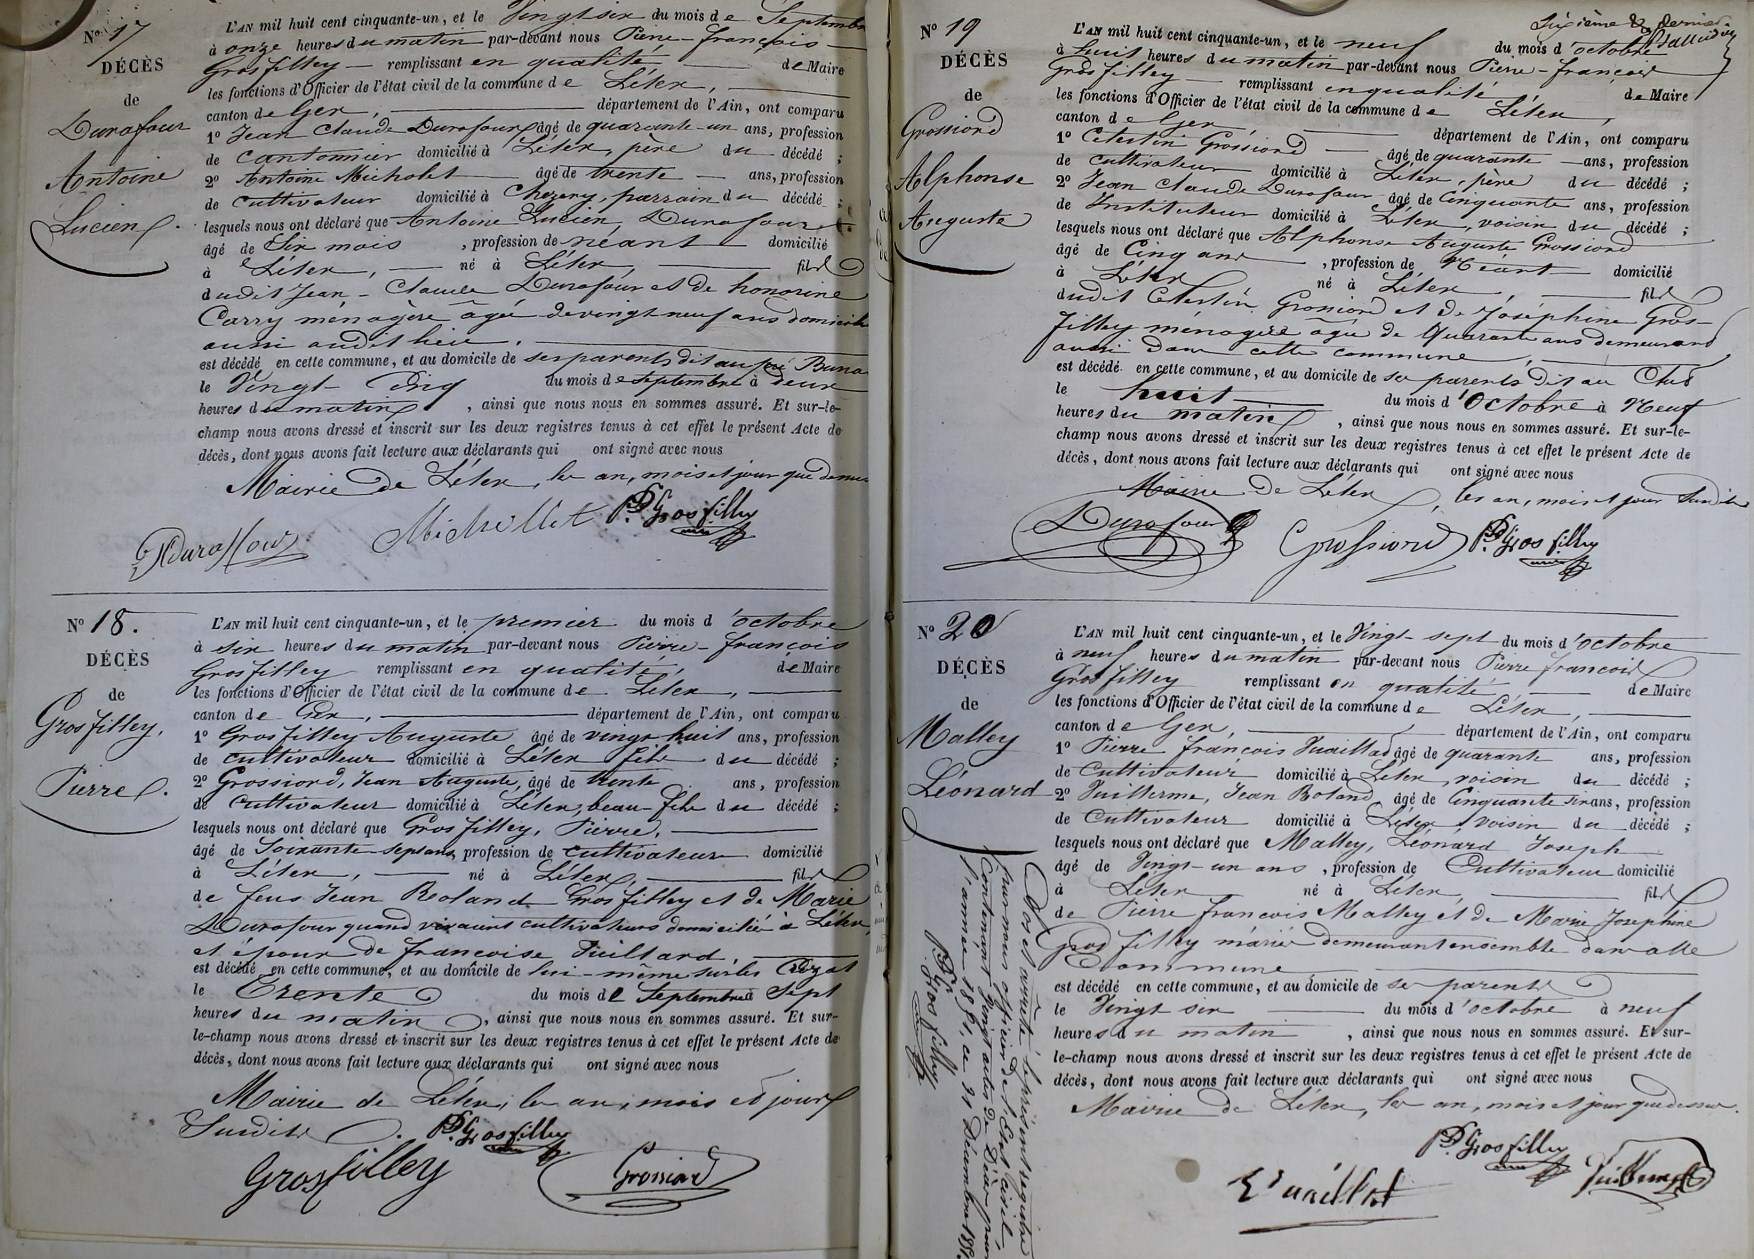 Nº 17
DÉCÈS
de
Durafour
Antoine
Lucien.
L'AN mil huit cent cinquante-un, et le Vingt six du mois de Septembre
à onze heures du matin par-devant nous Pierre-françois
Grosfilley remplissant en qualité de Maire
les fonctions d'Officier de l'état civil de la commune de Lélex,
canton de Gex, département de l'Ain, ont comparu
1º Jean Claude Durafour âgé de quarante-un ans, profession
de cantonnier domicilié à Lélex, père du décédé ;
2º Antoine Micholet âgé de trente ans, profession
de cultivateur domicilié à Chezery, parrain du décédé ;
lesquels nous ont déclaré que Antoine Lucien, Durafour
âgé de Six mois , profession de néant domicilié
à Lélex, né à Lélex, fils
dudit Jean-Claude Durafour et de honorine
Carry ménagère âgée de vingt neuf ans domiciliée
aussi audit lieu.
est décédé en cette commune, et au domicile de ses parents dit au pré Buna
le Vingt Cinq du mois de septembre à deux
heures du matin , ainsi que nous nous en sommes assuré. Et sur-le-
champ nous avons dressé et inscrit sur les deux registres tenus à cet effet le présent Acte de
décès, dont nous avons fait lecture aux déclarants qui ont signé avec nous
Mairie de Lélex, les an, mois et jour que dessus
JC Duraffour Michollet P.F. Grosfilley
Nº 18.
DÉCÈS
de
Grosfilley,
Pierre.
L'AN mil huit cent cinquante-un, et le premier du mois d'octobre
à six heures du matin par-devant nous Pierre-françois
Grosfilley remplissant en qualité, de Maire
les fonctions d'Officier de l'état civil de la commune de Lélex,
canton de Gex, département de l'Ain, ont comparu
1º Grosfilley Auguste âgé de vingt huit ans, profession
de cultivateur domicilié à Lélex fils du décédé ;
2º Grossiord, Jean Auguste, âgé de trente ans, profession
de cultivateur domicilié à Lélex, beau-fils du décédé ;
lesquels nous ont déclaré que Grosfilley, Pierre,
âgé de Soixante-sept ans, profession de cultivateur domicilié
à Lélex, né à Lélex, fils
de feus Jean Roland Grosfilley et de Marie
Durafour quand vivaient cultivateurs domiciliés à Lélex,
et époux de francoise Vuillard,
est décédé en cette commune, et au domicile de lui-même sur les Crozat
le Trente du mois de Septembre à Sept
heures du matin , ainsi que nous nous en sommes assuré. Et sur-
le-champ nous avons dressé et inscrit sur les deux registres tenus à cet effet le présent Acte de
décès, dont nous avons fait lecture aux déclarants qui ont signé avec nous
Mairie de Lélex, les an, mois et jour
Susdits. P.F. Grosfilley
Grosfilley Grossiord
Sixième & dernier
Nº 19
DÉCÈS
de
Grossiord
Alphonse
Auguste
L'AN mil huit cent cinquante-un, et le neuf du mois d'octobre
à huit heures du matin par-devant nous Pierre-francois
Grosfilley remplissant en qualité de Maire
les fonctions d'Officier de l'état civil de la commune de Lélex,
canton de Gex, département de l'Ain, ont comparu
1º Célestin Grossiord âgé de quarante ans, profession
de cultivateur domicilié à Lélex, père du décédé ;
2º Jean Claude Durafour âgé de Cinquante ans, profession
de Instituteur domicilié à Lélex, voisin du décédé ;
lesquels nous ont déclaré que Alphonse Auguste Grossiord
âgé de Cinq ans , profession de Néant domicilié
à Lélex né à Lélex, fils
dudit Célestin Grossiord et de Joséphine Gros-
filley ménagère agée de Quarante ans demeurant
aussi dans cette commune,
est décédé en cette commune, et au domicile de ses parents dit au Clos
le huit du mois d'Octobre à Neuf
heures du matin , ainsi que nous nous en sommes assuré. Et sur-le-
champ nous avons dressé et inscrit sur les deux registres tenus à cet effet le présent Acte de
décès, dont nous avons fait lecture aux déclarants qui ont signé avec nous
Mairie de Lélex, les an, mois et jour Susdits
Durafour Grossiord P.F. Grosfilley
Nº 20
DÉCÈS
de
Malley
Léonard
L'AN mil huit cent cinquante-un, et le Vingt-sept du mois d'octobre
à neuf heures du matin par-devant nous Pierre francois
Grosfilley remplissant en qualité, de Maire
les fonctions d'Officier de l'état civil de la commune de Lélex,
canton de Gex, département de l'Ain, ont comparu
1º Pierre françois Vuaillat âgé de quarante ans, profession
de Cultivateur domicilié à Lélex, voisin du décédé ;
2º Vuillerme, Jean Roland âgé de Cinquante six ans, profession
de Cultivateur domicilié à Lélex, voisin du décédé ;
lesquels nous ont déclaré que Malley, Léonard Joseph
âgé de Vingt-un ans , profession de Cultivateur domicilié
à Lélex né à Lélex, fils
de Pierre francois Malley et de Marie Josephine
Grosfilley mariés demeurant ensemble dans cette
Commune
est décédé en cette commune, et au domicile de ses parents
le Vingt six du mois d'octobre à neuf
heures du matin , ainsi que nous nous en sommes assuré. Et sur-
le-champ nous avons dressé et inscrit sur les deux registres tenus à cet effet le présent Acte de
décès, dont nous avons fait lecture aux déclarants qui ont signé avec nous
Mairie de Lélex, les an, mois et jour que dessus.
P.F. Grosfilley
Vuaillat Vuillerme
Clos et arrêté le présent registre
par nous officier de l'Etat civil,
Contenant Vingt actes de Décès pour
l'année 1851, ce 31 Décembre 1851.
P.F. Grosfilley